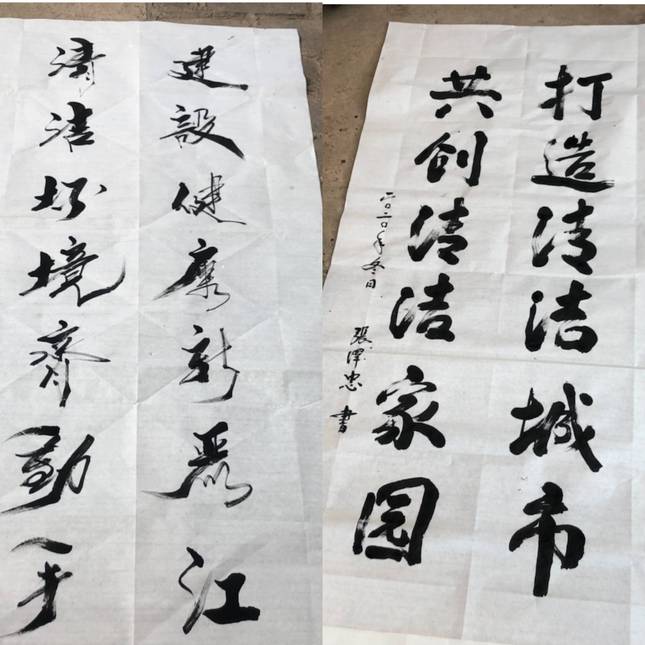 建設健康新麗江
清洁环境齊動手
打造清洁城市
共创清洁家园
二〇二〇年冬日 張澤忠 書